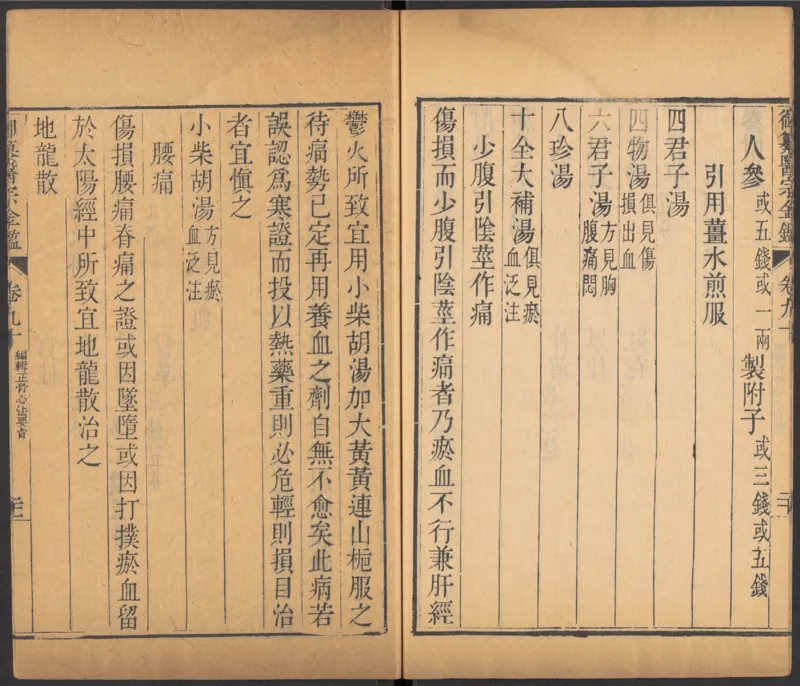 御纂醫宗金鑑 卷九十
人參或五錢或一兩製附子或三錢或五錢
引用薑水煎服
四君子湯
四物湯俱見傷損出血
六君子湯方見胸腹痛悶
八珍湯
十全大補湯俱見瘀血泛注
少腹引陰莖作痛
傷損而少腹引陰莖作痛者乃瘀血不行兼肝經
鬱火所致宜用小柴胡湯加大黃黃連山梔服之
待痛勢已定再用養血之劑自無不愈矣此病若
誤認爲寒證而投以熱藥重則必危輕則損目治
者宜慎之
小柴胡湯方見瘀血泛注
腰痛
傷損腰痛脊痛之證或因墜墮或因打撲瘀血留
於太陽經中所致宜地龍散治之
地龍散
御纂醫宗金鑑 卷九十 編輯正骨心法要旨